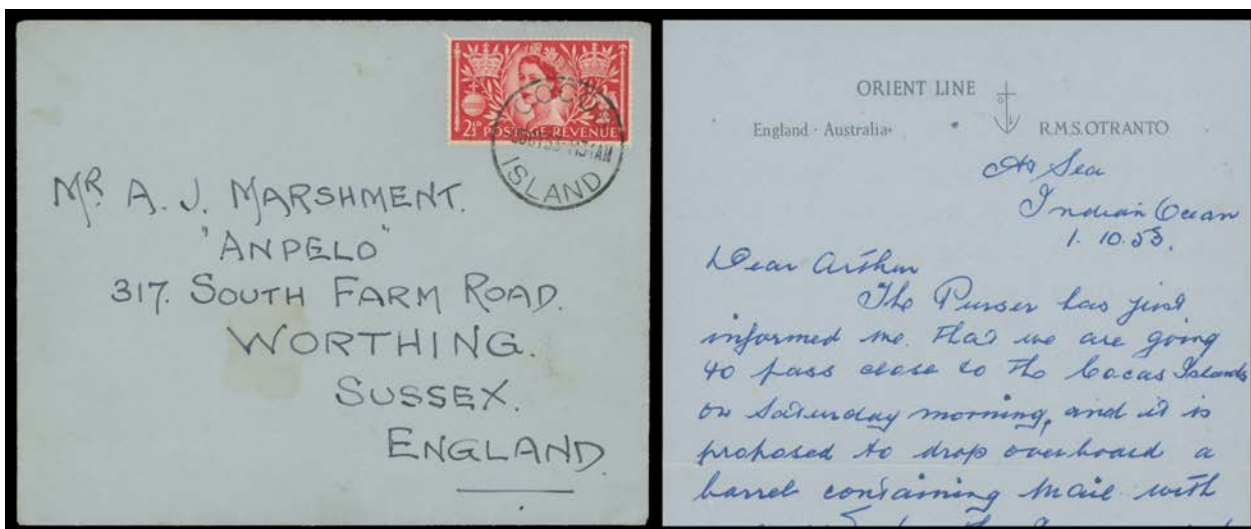 2½D POSTAGE REVENUE
COCOS
ISLAND
MR. A. J. MARSHMENT.
"ANPELO"
317. SOUTH FARM ROAD.
WORTHING.
SUSSEX.
ENGLAND.
ORIENT LINE
England · Australia
R.M.S. OTRANTO
At Sea
Indian Ocean
1. 10. 53.
Dear Arthur
The Purser has just
informed me. that we are going
to pass close to the Cocas Islands
on Saturday morning, and it is
proposed to drop overboard a
barrel containing mail with